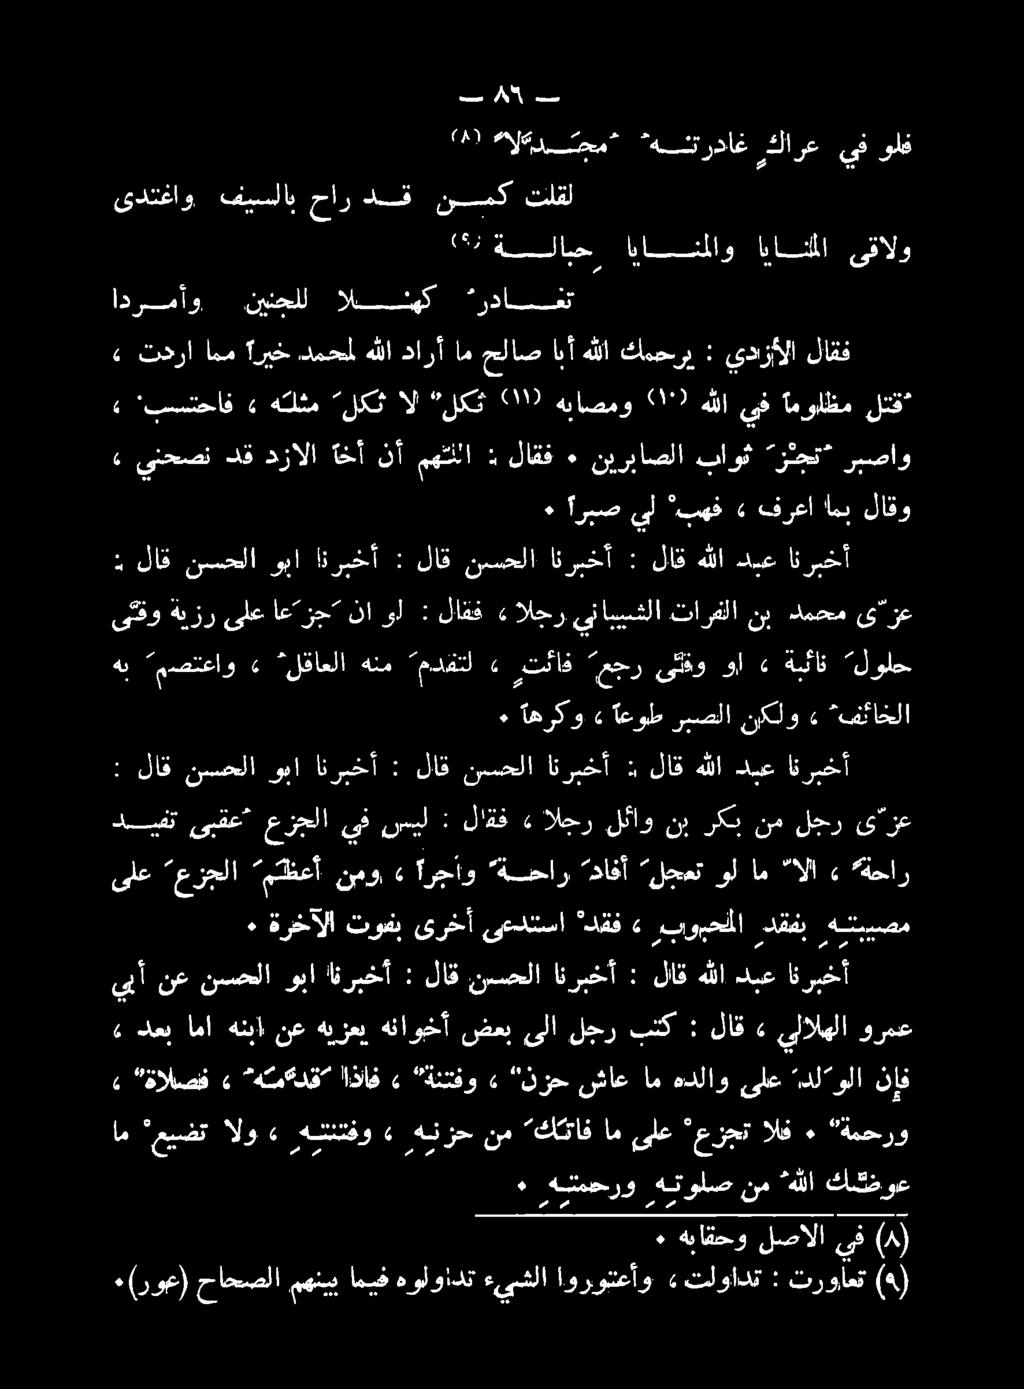 — ٨٦ —
فلو في عراكٍ غادرتـــهُ مُجَــدّلاً (٨)
لقلت كمــن قــد راح بالسيف واغتدى
ولاقى المنــايا والمنــــايا حِبالـــة (٩)
تغــــادرُ كهــــلا للجنين وأمــردا
فقال الأزدي : يرحمك الله أبا صالح ما أراد الله لمحمد خيراً مما اردت ،
قُتل مظلوماً في الله (١٠) ومصابه (١١) ثكلٌ لا ثكلَ مثله ، فاحتسبْ ،
واصبر تُجْزَ ثواب الصابرين ٠ فقال : اللّهم أن أخاً الازد قد نصحني ،
وقال بما اعرف ، فهبْ لي صبراً ٠
أخبرنا عبد الله قال : أخبرنا الحسن قال : أخبرنا ابو الحسن قال :
عزّى محمد بن الفرات الشيباني رجلا ، فقال : لو ان جَزعا على رزية وقّى
حلولَ نائبة ، او وقّى رجعَ فائتٍ ، لتقدمَ منه العاقلُ ، واعتصمَ به
الخائفُ ، ولكن الصبر طوعاً ، وكرهاً ٠
أخبرنا عبد الله قال : أخبرنا الحسن قال : أخبرنا ابو الحسن قال :
عزّى رجل من بكر بن وائل رجلا ، فقال : ليس في الجزع عُقبى تفيــد
راحةً ، الاّ ما لو تعجلَ أفادَ راحــةً وأجراً ، ومن أعظَمَ الجزعَ على
مصيبتِهِ بفقدِ المحبوبِ ، فقدْ استدعى أخرى بفوت الآخرة ٠
أخبرنا عبد الله قال : أخبرنا الحسن قال : أخبرنا ابو الحسن عن أبي
عمرو الهلالي ، قال : كتب رجل الى بعض أخوانه يعزيه عن ابنه اما بعد ،
فإن الوَلدَ على والده ما عاش حزنٌ ، وفتنةٌ ، فاذا قَدّمَهُ ، فصلاةٌ ،
ورحمةٌ ٠ فلا تجزعْ على ما فاتَكَ من حزنِهِ ، وفتنتِهِ ، ولا تضيعْ ما
عوضّك اللهُ من صلوتِهِ ورحمتِهِ ٠
(٨) في الاصل وحقابه ٠
(٩) تعاورت : تداولت ، وأعتوروا الشيء تداولوه فيما بينهم الصحاح (عور) ٠